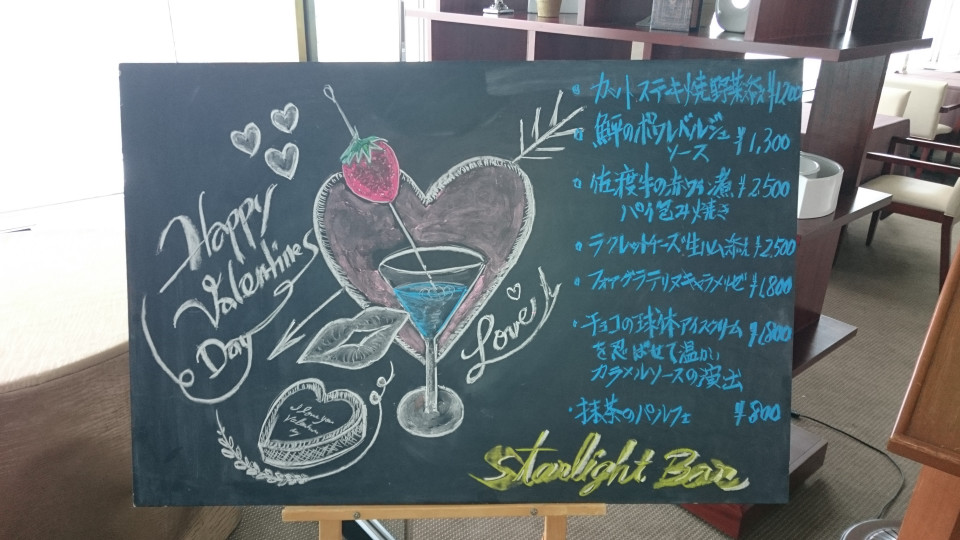 Happy
Valentines
Day
Lovely
I love you
カットステーキ焼野菜添え ¥1,200
鮃のポワレベルジュ
ソース ¥1,300
佐渡牛の赤ワイン煮 ¥2,500
パイ包み焼き
ラクレットチーズ生ハム添え ¥2,500
フォアグラテリーヌキャラメリゼ ¥1,800
・チョコの球体アイスクリーム ¥1,800
を忍ばせて温かい
カラメルソースの演出
・抹茶のパルフェ ¥800
Starlight Bar